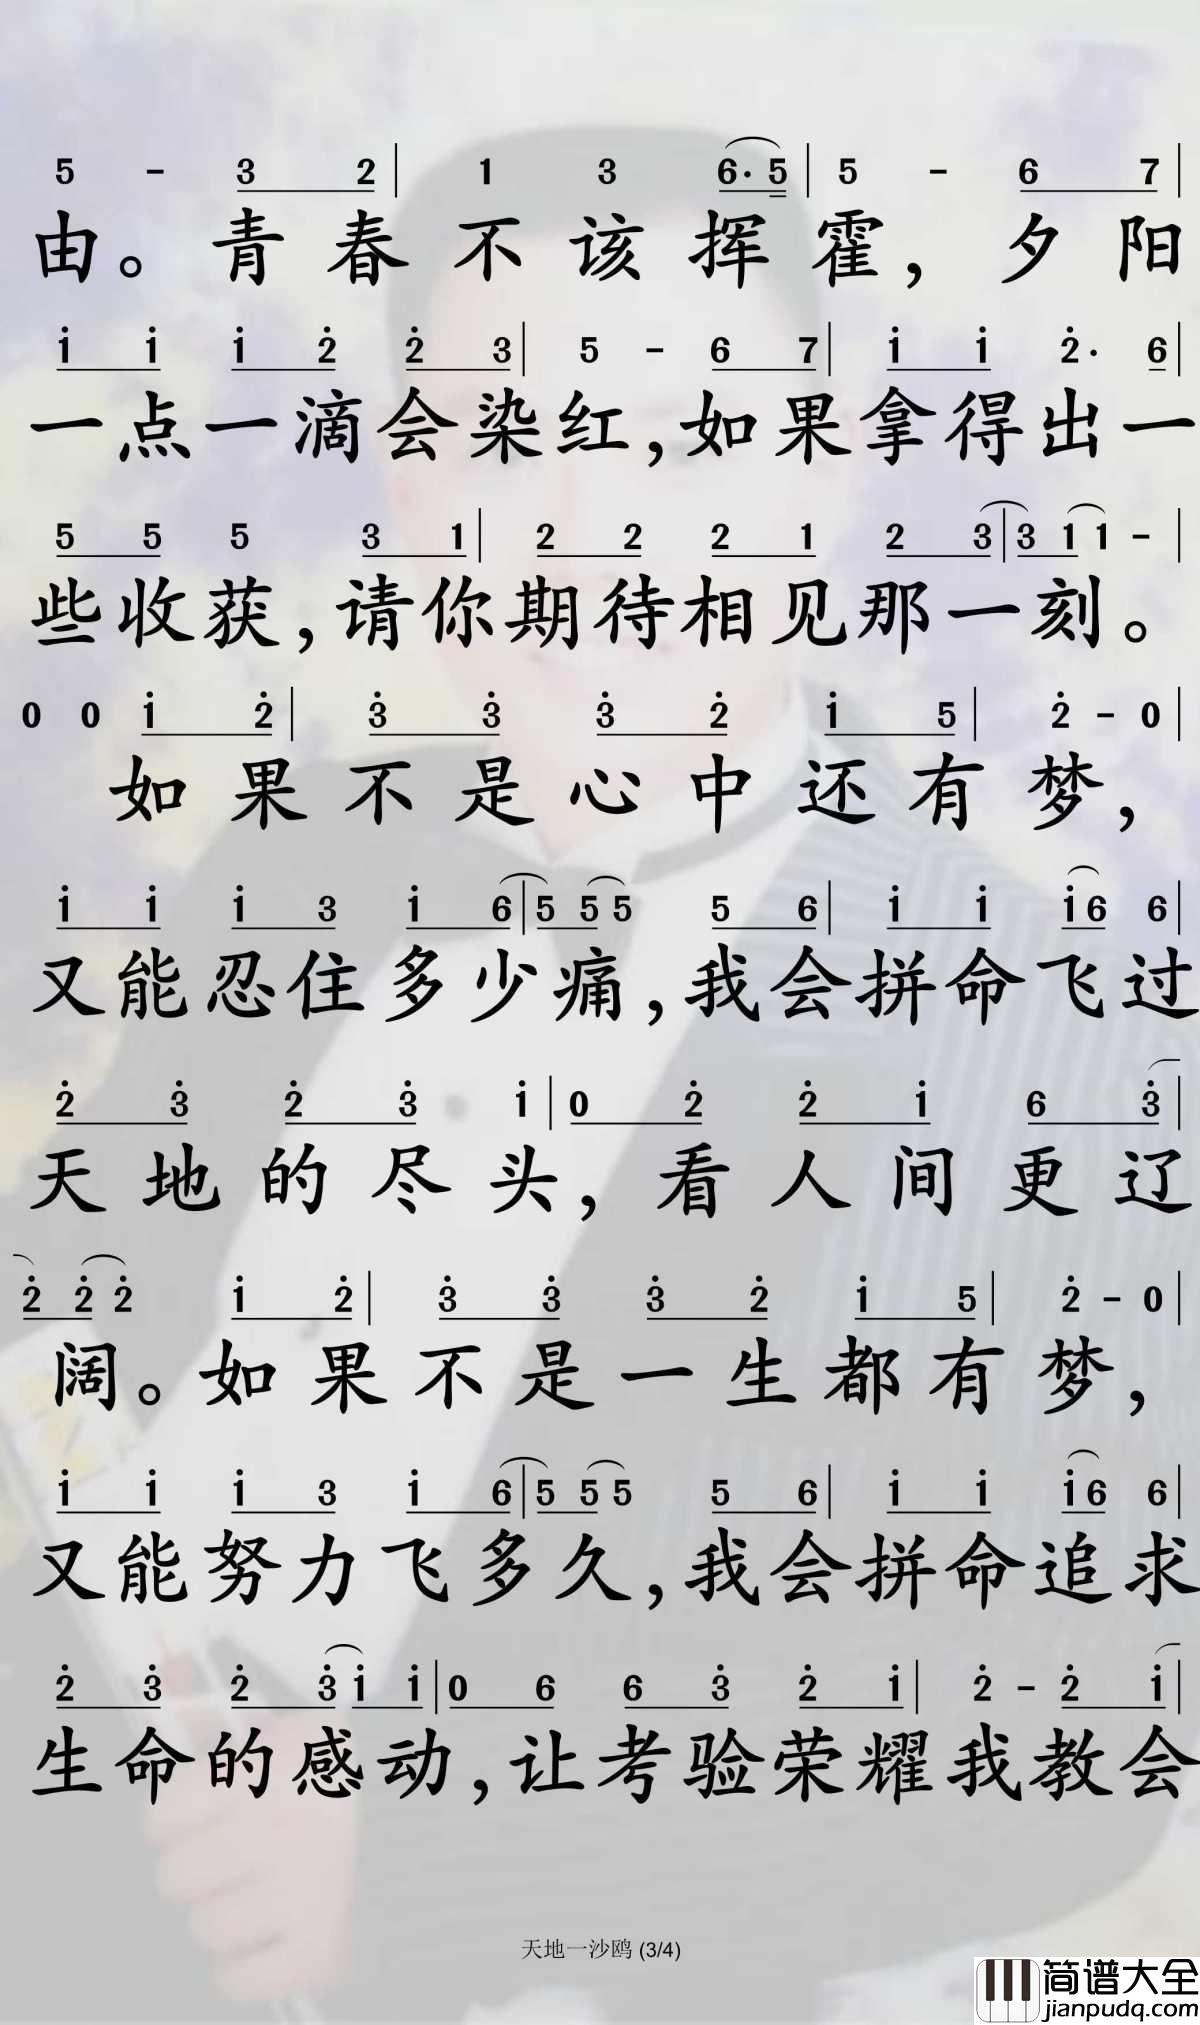 5 - 3 2 | 1 3 6· 5 | 5 - 6 7 |
由。青春不该挥霍,夕阳
i i i 2 2 3 | 5 - 6 7 | i i 2· 6 |
一点一滴会染红,如果拿得出一
5 5 5 3 1 | 2 2 2 1 2 3 | 3 1 1 - |
些收获,请你期待相见那一刻。
0 0 i 2 | 3 3 3 2 i 5 | 2 - 0 |
如果不是心中还有梦,
i i i 3 i 6 | 5 5 5 5 6 | i i i 6 6 |
又能忍住多少痛,我会拼命飞过
2 3 2 3 i | 0 2 2 i 6 3 |
天地的尽头,看人间更辽
2 2 2 i 2 | 3 3 3 2 i 5 | 2 - 0 |
阔。如果不是一生都有梦,
i i i 3 i 6 | 5 5 5 5 6 | i i i 6 6 |
又能努力飞多久,我会拼命追求
2 3 2 3 i i | 0 6 6 3 2 i | 2 - 2 i |
生命的感动,让考验荣耀我教会
天地一沙鸥 (3/4)
简谱大全
jianpudq.com